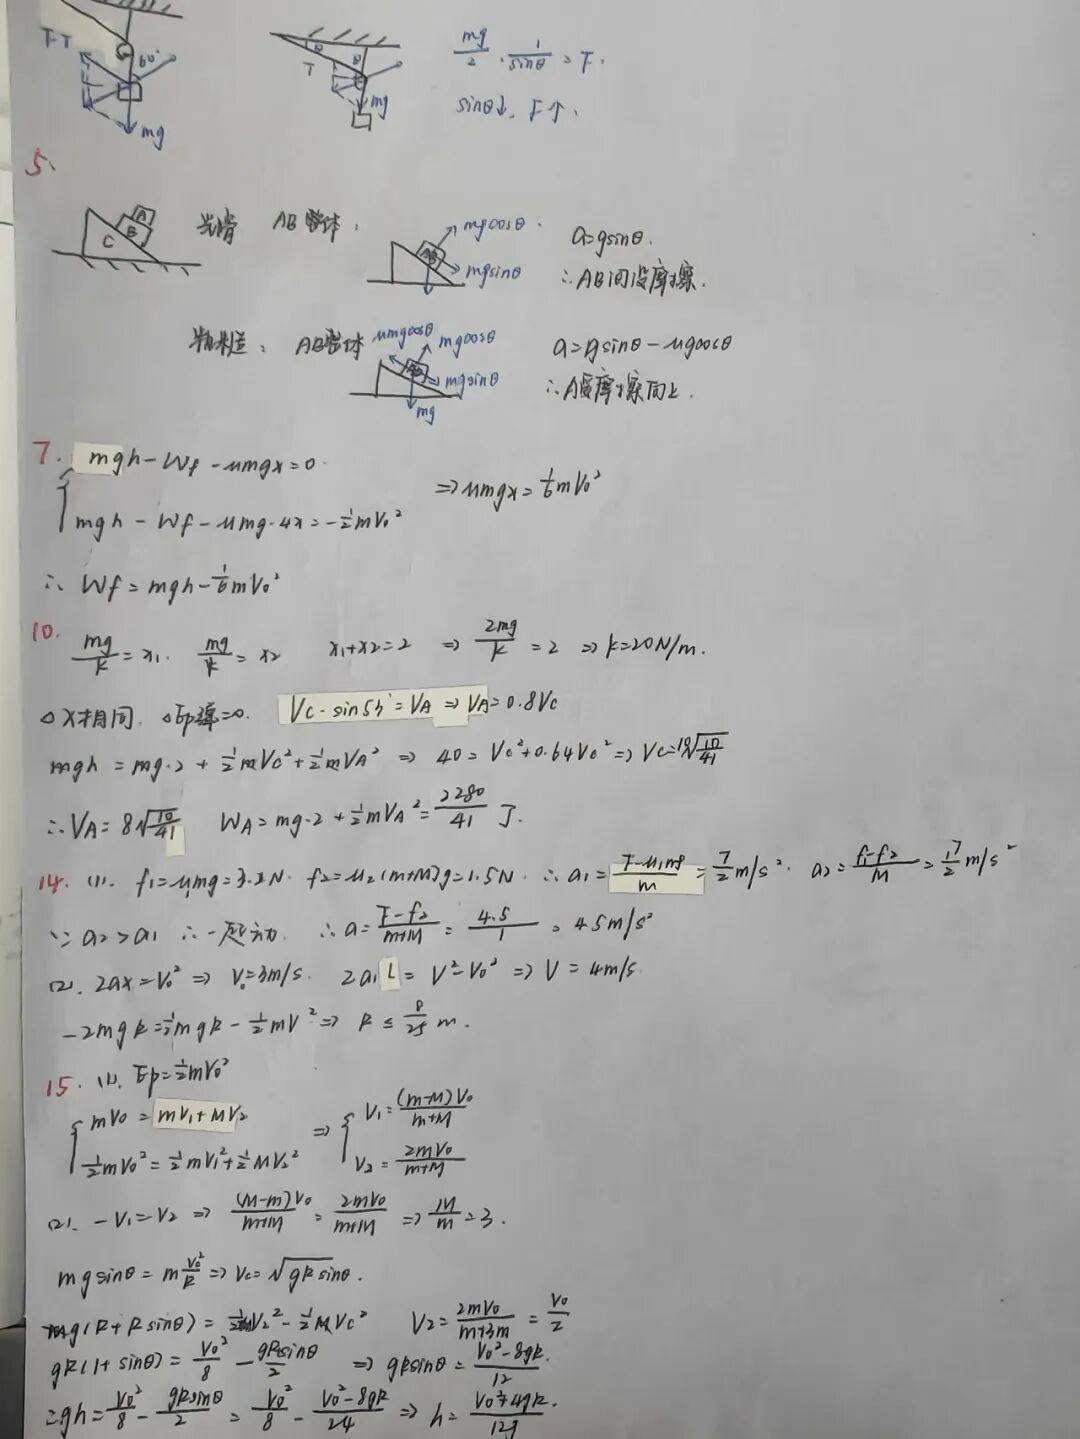 FT 60° mg
θ θ T mg
mg/2 · 1/sinθ = F.
sinθ↓, F↑.
5、
A B C 光滑 AB整体: AB mgcosθ mgsinθ a=gsinθ.
∴AB间没摩擦.
粗糙: AB整体 μmgcosθ mgcosθ mgsinθ mg a=gsinθ-μgcosθ
∴A受摩擦向上.
7. mgh-Wf-μmgx=0.
⇒μmgx=1/6mV₀²
mgh-Wf-μmg·4x=-1/2mV₀²
∴ Wf=mgh-1/6mV₀²
10. mg/k=x₁. mg/k=x₂ x₁+x₂=2 ⇒ 2mg/k=2 ⇒k=20N/m.
△x相同. △Ep弹=0. Vc·sin53°=VA⇒VA=0.8Vc
mgh=mg·2+1/2mVc²+1/2mVA² ⇒ 40=Vc²+0.64Vc²⇒Vc=10√10/41
∴VA=8√10/41 WA=mg·2+1/2mVA²=2280/41 J.
14. (1). f₁=μ₁mg=3.2N. f₂=μ₂(m+M)g=1.5N. ∴a₁=F-μ₁mg/m=7/2m/s². a₂=f₁-f₂/M=17/2m/s²
∵a₂>a₁ ∴一起动. ∴a=F-f₂/m+M=4.5/1=4.5m/s²
(2). 2ax=V₀²⇒V₀=3m/s. 2a₁L=V²-V₀²⇒V=4m/s.
-2mgR=1/2mgR-1/2mV²⇒R≤8/25m.
15. (1). Ep=1/2mV₀²
mV₀=mV₁+MV₂ ⇒ V₁=(m-M)V₀/m+M
1/2mV₀²=1/2mV₁²+1/2MV₂² V₂=2mV₀/m+M
(2). -V₁=V₂⇒(M-m)V₀/m+M=2mV₀/m+M⇒M/m=3.
mgsinθ=mV₀²/R⇒Vc=√gRsinθ.
mg(R+Rsinθ)=1/2MV₂²-1/2MVc² V₂=2mV₀/m+3m=V₀/2
gR(1+sinθ)=V₀²/8-gRsinθ/2 ⇒gRsinθ=V₀²-8gR/12
∴gh=V₀²/8-gRsinθ/2=V₀²/8-V₀²-8gR/24⇒h=V₀²+4gR/12g.